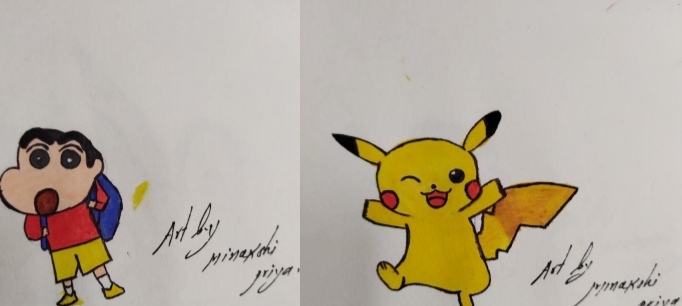 Art by
Minakshi
priya.
Art by
Minakshi
priya